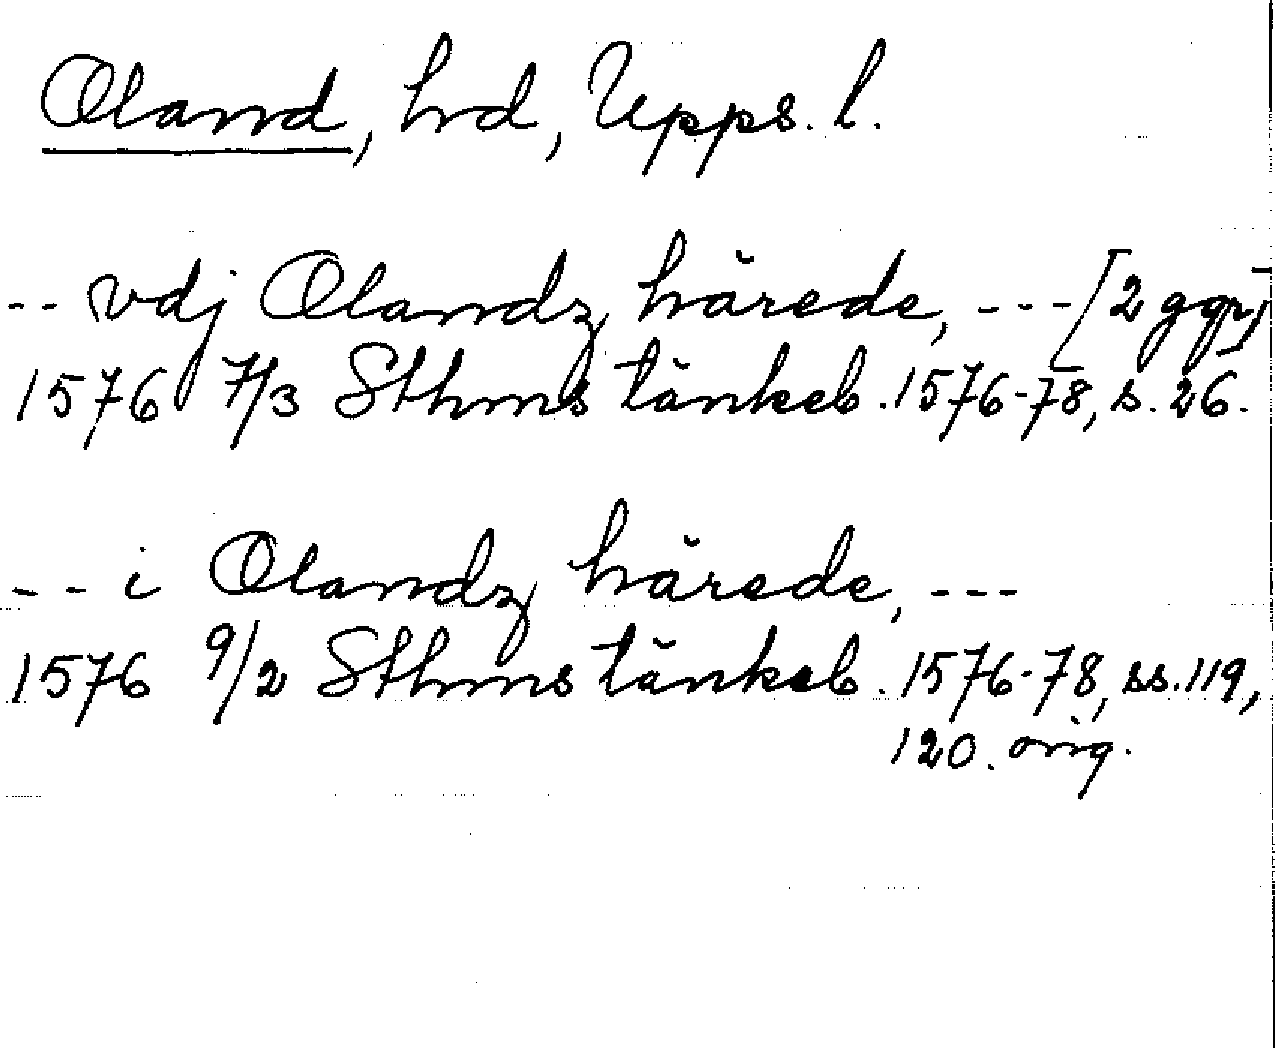 Oland, hrd, Upps. l.
-- vdj Olandz härede, --- [2 ggr]
1576 7/3 Sthms tänkeb. 1576-78, s. 26.
-- i Olandz härede, ---
1576 9/2 Sthms tänkeb. 1576-78, ss. 119,
120. orig.